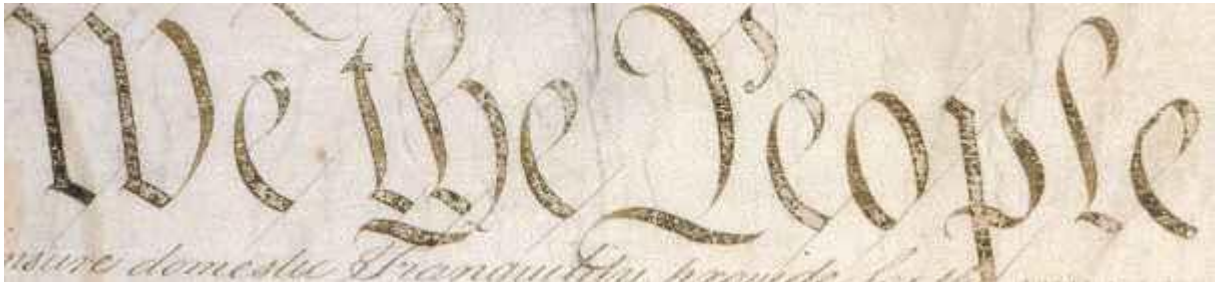 We the People
nsure domestic Tranquility, provide for the